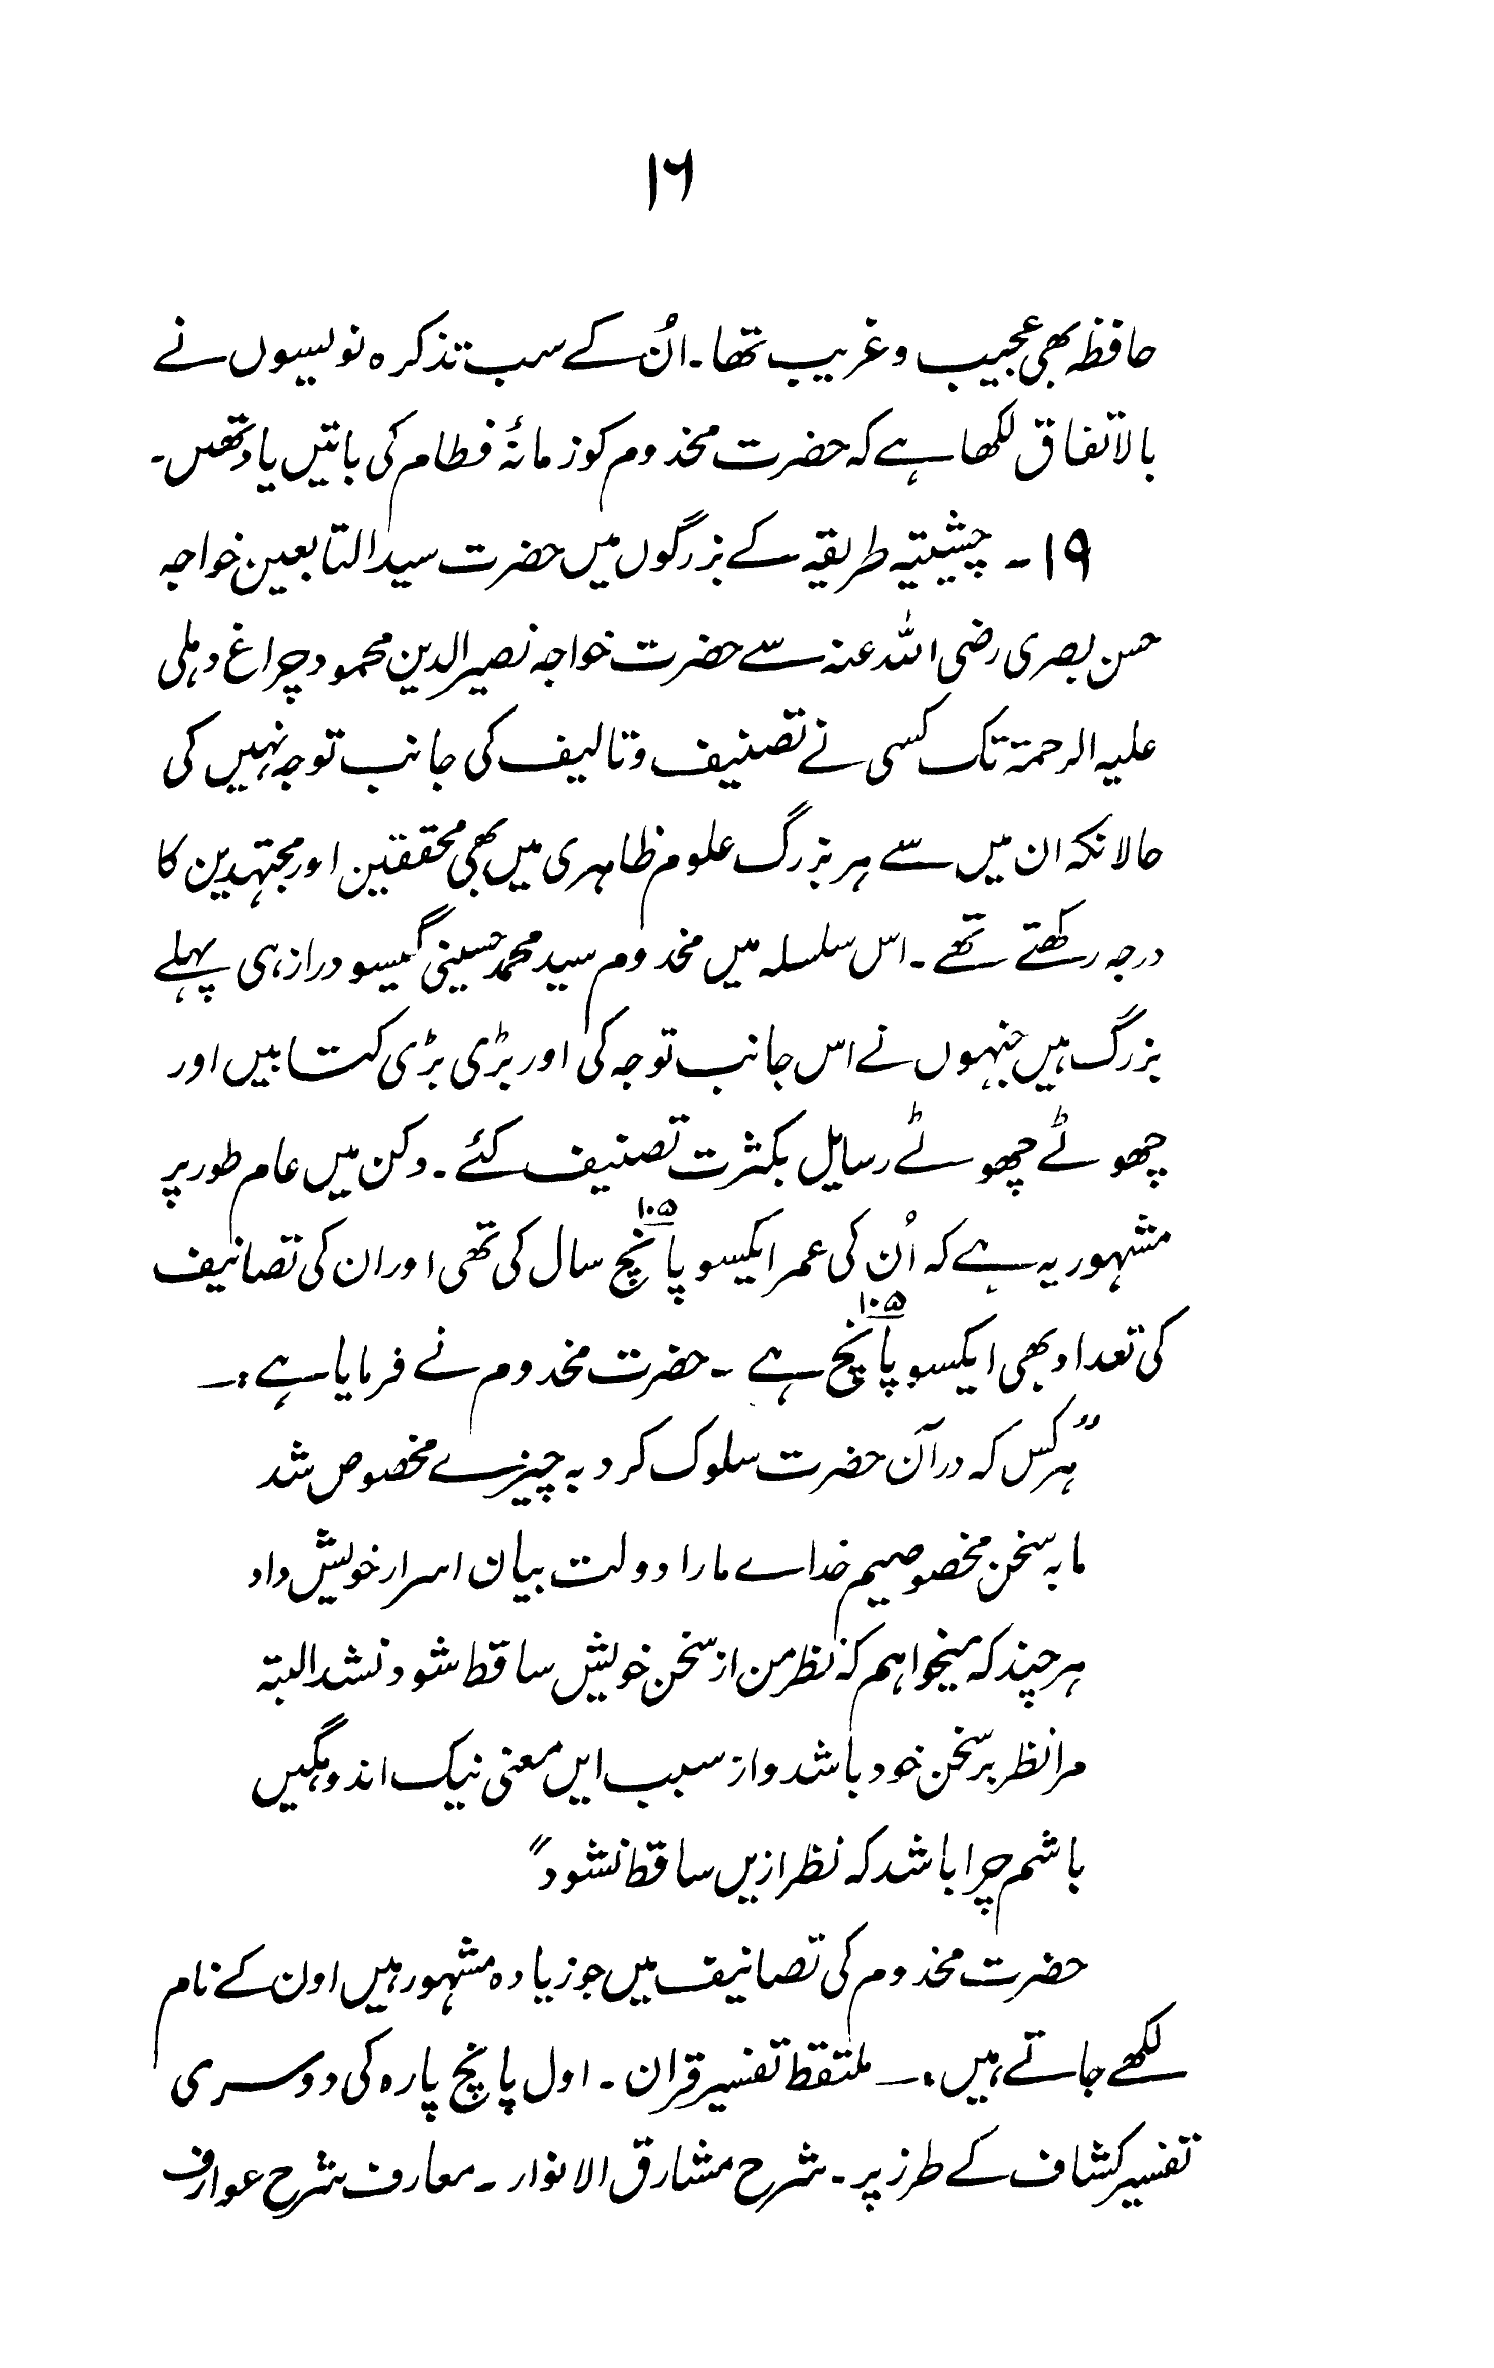 ۱۶
حافظہ بھی عجیب و غریب تھا۔ اُن کے سب تذکرہ نویسوں نے
بالاتفاق لکھا ہے کہ حضرت مخدوم کو زمانۂ فطام کی باتیں یاد تھیں۔
۱۹۔ چشتیہ طریقہ کے بزرگوں میں حضرت سید التابعین خواجہ
حسن بصری رضی اللہ عنہ سے حضرت خواجہ نصیر الدین محمود چراغ دہلی
علیہ الرحمۃ تک کسی نے تصنیف و تالیف کی جانب توجہ نہیں کی
حالانکہ ان میں سے ہر بزرگ علوم ظاہری میں بھی محققین اور مجتہدین کا
درجہ رکھتے تھے۔ اس سلسلہ میں مخدوم سید محمد حسینی گیسو دراز ہی پہلے
بزرگ ہیں جنہوں نے اس جانب توجہ کی اور بڑی بڑی کتابیں اور
چھوٹے چھوٹے رسایل بکثرت تصنیف کئے۔ دکن میں عام طور پر
مشہور یہ ہے کہ اُن کی عمر ایکسو پانچ ۱۰۵ سال کی تھی اور ان کی تصانیف
کی تعداد بھی ایکسو پانچ ۱۰۵ ہے ۔ حضرت مخدوم نے فرمایا ہے :۔
”ہر کس کہ در آن حضرت سلوک کرد بہ چیزے مخصوص شد
ما بہ سخن مخصوصیم خداے مارا دولت بیان اسرار خویش داد
ہر چند کہ میخواہم کہ نظر من از سخن خویش ساقط شود نشد البتہ
مرا نظر بر سخن خود باشد و از سبب ایں معنی نیک اندوہگیں
باشم چرا باشد کہ نظر ازیں ساقط نشود“
حضرت مخدوم کی تصانیف میں جو زیادہ مشہور ہیں اون کے نام
لکھے جاتے ہیں :۔ ملتقط تفسیر قران ۔ اول پانچ پارہ کی دوسری
تفسیر کشاف کے طرز پر ۔ شرح مشارق الانوار ۔ معارف شرح عوارف